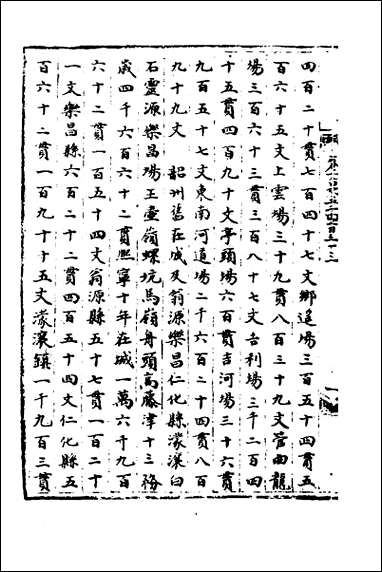 四百二十貫七百四十七文鄉遥場三百五十四貫五
百六十五文上雲場三十九貫八百三十九文管曲龍
場三百六十三貫三百八十七文古利場三千二百四
十五貫四百九十文亭頭場六百貫吉河場三十六貫
九百五十七文東南河道場二千六百二十四貫八百
九十九文　韶州舊在城及翁源樂昌仁化縣濛瀼白
石靈源樂昌場王壺嶺螺坑馬嶺舟頭高藤津十三務
歲四千六百六十二貫熙寧十年在城一萬六千九百
六十二貫一百五十四文翁源縣五十七貫一百二十
一文樂昌縣六百二十二貫四百五十四文仁化縣五
百六十二貫一百九十十五文濛瀼鎮一千九百三貫